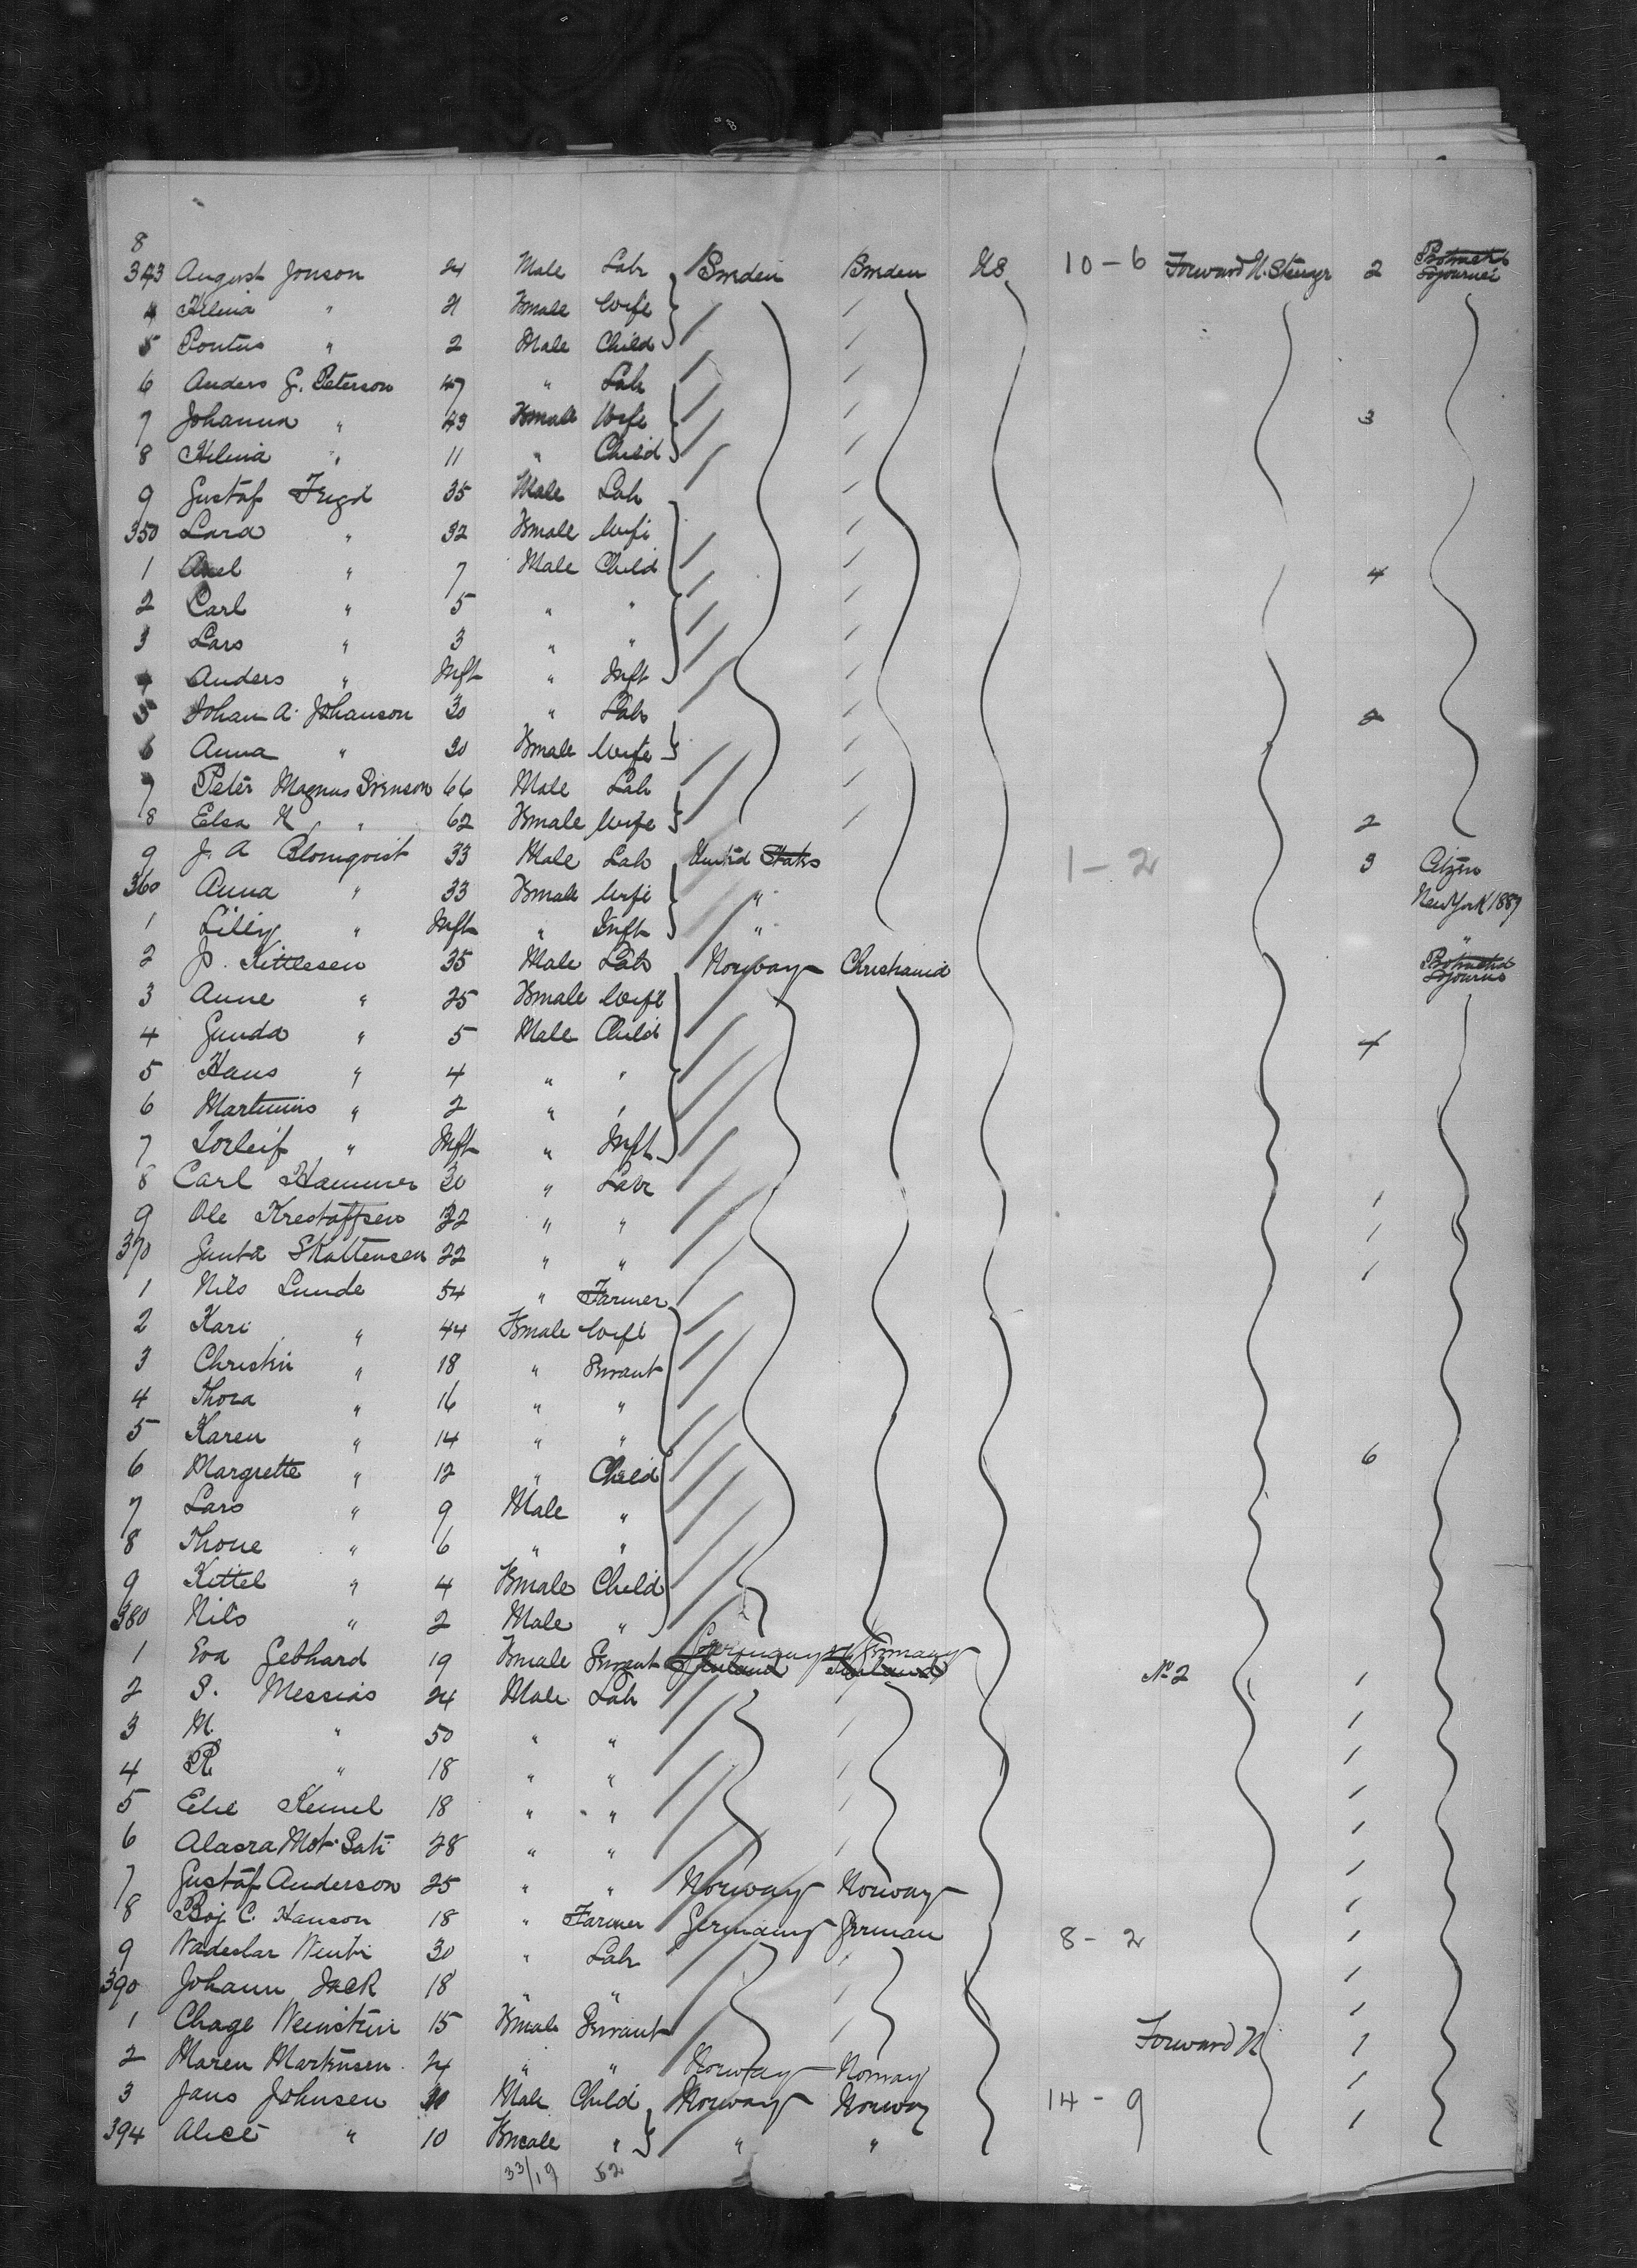 8
343 August Jonson 24 Male Labr Sweden Sweden US 10-6 Forward N. Steerge 2 Protracted Sojourner
4 Helena " 21 Female Wife
5 Pontus " 2 Male Child
6 Anders G. Peterson 47 " Lab
7 Johanna " 43 Female Wife 3
8 Helena " 11 " Child
9 Gustaf 35 Male Lab
350 Lara " 32 Female Wife
1 Axel " 7 Male Child 4
2 Carl " 5 " "
3 Lars " 3 " "
4 Anders " Inft " Inft
5 Johan A. Johanson 30 " Lab 2
6 Anna " 30 Female Wife
7 Peter Magnus Svenson 66 Male Lab
8 Elsa " 62 Female Wife 2
9 J. A Blomqvist 33 Male Lab United States 1-2 3 Citizen
360 Anna " 33 Female Wife " New York 1889
1 Lilly " Inft " Inft " "
2 J. Kittlesen 35 Male Lab Norway Christiania Protracted Sojourns
3 Anne " 25 Female Wife
4 Gunda " 5 Male Child 4
5 Hans " 4 " "
6 Martinus " 2 " "
7 Torleif " Inft " Inft
8 Carl Hammer 30 " Labr 1
9 Ole Krestoffsen 32 " " 1
370 Skattensen 22 " " 1
1 Nils Lunde 54 " Farmer
2 Kari " 44 Female Wife
3 Christin " 18 " Servant
4 Thora " 16 " "
5 Karen " 14 " "
6 Margrette " 12 " Child 6
7 Lars " 9 Male "
8 Thone " 6 " "
9 Kittel " 4 Female Child
380 Nils " 2 Male "
1 Eva Gebhard 19 Female Servant Germany Germany Nº 2 1
2 S. Messias 24 Male Lab 1
3 M. " 50 " " 1
4 R " 18 " " 1
5 Elie Kemel 18 " " 1
6 28 " " 1
7 Gustaf Anderson 25 " " Norway Norway 1
8 Boj. C. Hanson 18 " Farmer Germany German 8-2 1
9 30 " Lab 1
390 Johann Jack 18 " " 1
1 Chage Weinstein 15 Female Servant Forward N 1
2 Maren Martinsen 24 " " Norway Norway 1
3 Jans Johnsen Male Child Norway Norway 14-9 1
394 Alice " 10 Female " " "
33/19 52